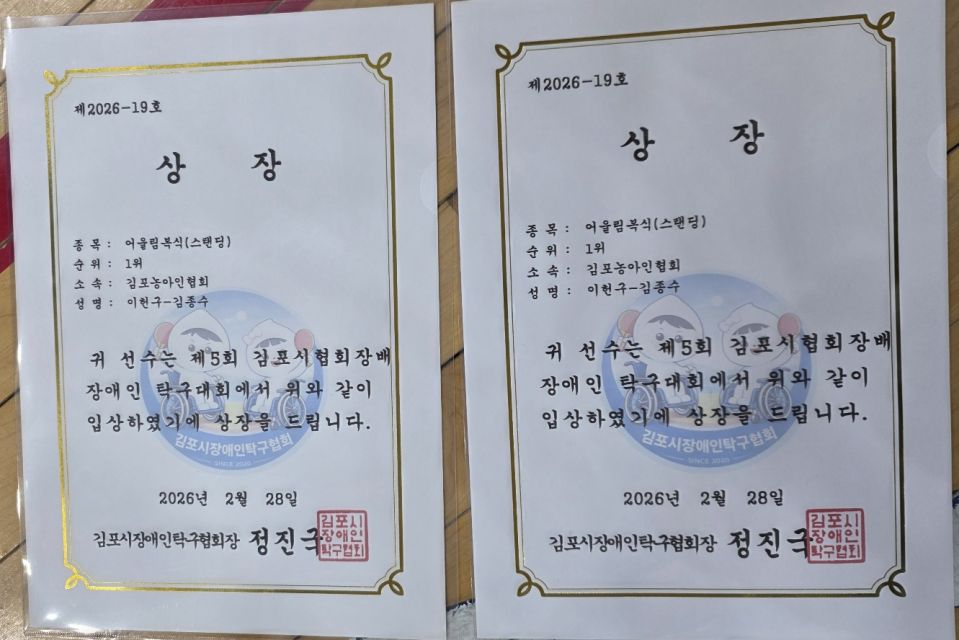 제2026-19호
상 장
종 목 : 어울림복식(스탠딩)
순 위 : 1위
소 속 : 김포농아인협회
성 명 : 이헌구-김종수
귀 선수는 제5회 김포시협회장배
장애인 탁구대회에서 위와 같이
입상하였기에 상장을 드립니다.
김포시장애인탁구협회
SINCE 2020
2026년 2월 28일
김포시장애인탁구협회장 정진국
김포시
장애인
탁구협회
제2026-19호
상 장
종 목 : 어울림복식(스탠딩)
순 위 : 1위
소 속 : 김포농아인협회
성 명 : 이헌구-김종수
귀 선수는 제5회 김포시협회장배
장애인 탁구대회에서 위와 같이
입상하였기에 상장을 드립니다.
김포시장애인탁구협회
SINCE 2020
2026년 2월 28일
김포시장애인탁구협회장 정진국
김포시
장애인
탁구협회